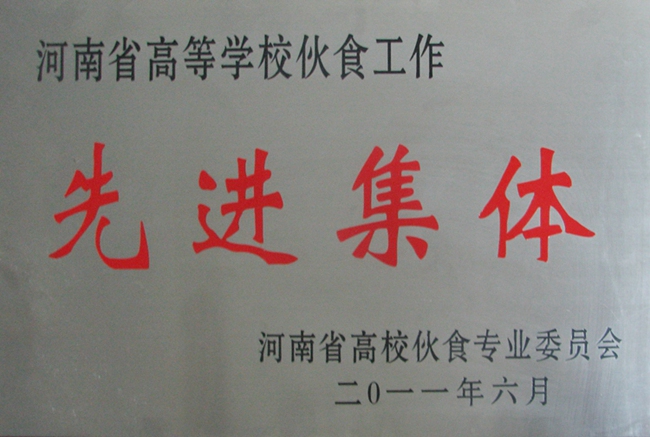 河南省高等学校伙食工作
先进集体
河南省高校伙食专业委员会
二0一一年六月